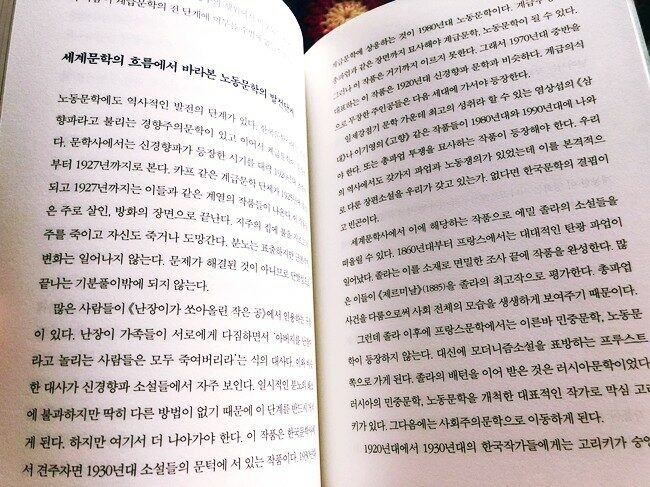 세계문학의 흐름에서 바라본 노동문학의 발전단계
노동문학에도 역사적인 발전의 단계가 있다.
향파라고 불리는 경향주의문학이 있고 이어서
다. 문학사에서는 신경향파가 등장한 시기를 대략
부터 1927년까지로 본다. 카프 같은 계급문학 단계가
되고 1927년까지는 이들과 같은 계열의 작품들이 나온다
은 주로 살인, 방화의 장면으로 끝난다. 지주의 집에 불을
주를 죽이고 자신도 죽거나 도망간다. 분노는 표출하지만
변화는 일어나지 않는다. 문제가 해결된 것이 아니므로
끝나는 기분풀이밖에 되지 않는다.
많은 사람들이 《난장이가 쏘아올린 작은 공》에서 인용하는
이 있다. 난장이 가족들이 서로에게 다짐하면서 ‘아버지를 난장이
라고 놀리는 사람들은 모두 죽여버리라’는 식의 대사다.
한 대사가 신경향파 소설들에서 자주 보인다. 일시적인 분노의
에 불과하지만 딱히 다른 방법이 없기 때문에 이 단계를 반드시
게 된다. 하지만 여기서 더 나아가야 한다. 이 작품은 한국문학
서 견주자면 1930년대 소설들의 문턱에 서 있는 작품이다.
계급문학에 상응하는 것이 1980년대 노동문학이다. 계급문학,
총파업과 같은 장면까지 묘사해야 계급문학, 노동문학이 될 수 있다.
그러나 이 작품은 거기까지 이르지 못한다. 그래서 1970년대 중반을
대표하는 이 작품은 1920년대 신경향파 문학과 비슷하다. 계급의식
으로 무장한 주인공들은 다음 세대에 가서야 등장한다.
일제강점기 문학 가운데 최고의 성취라 할 수 있는 염상섭의 《삼
대》나 이기영의 《고향》 같은 작품들이 1980년대와 1990년대에 나와
야 한다. 또는 총파업 투쟁을 묘사하는 작품이 등장해야 한다. 우리
의 역사에서도 갖가지 파업과 노동쟁의가 있었는데 이를 본격적으
로 다룬 장편소설을 우리가 갖고 있는가. 없다면 한국문학의 결핍이
고 빈곤이다.
세계문학사에서 이에 해당하는 작품으로 에밀 졸라의 소설들을
떠올릴 수 있다. 1860년대부터 프랑스에서는 대대적인 탄광 파업이
일어났다. 졸라는 이를 소재로 면밀한 조사 끝에 작품을 완성한다. 많
은 이들이 《제르미날》(1885)을 졸라의 최고작으로 평가한다. 총파업
사건을 다룸으로써 사회 전체의 모습을 생생하게 보여주기 때문이다.
그런데 졸라 이후에 프랑스문학에서는 이른바 민중문학, 노동문
학이 등장하지 않는다. 대신에 모더니즘소설을 표방하는 프루스트
쪽으로 가게 된다. 졸라의 배턴을 이어 받은 것은 러시아문학이었다.
러시아의 민중문학, 노동문학을 개척한 대표적인 작가로 막심 고리
키가 있다. 그다음에는 사회주의문학으로 이동하게 된다.
1920년대에서 1930년대의 한국작가들에게는 고리키가